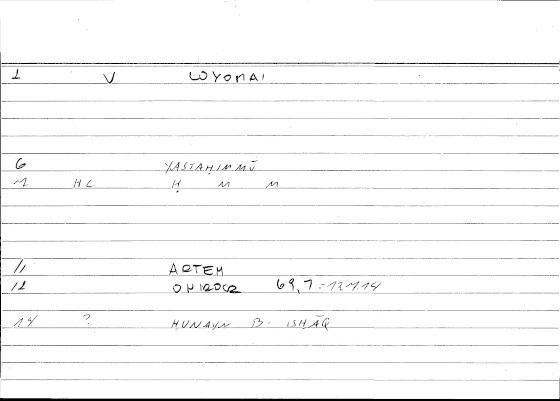 1 V LOYOMAI
6 YASTAḤIMMU
7 HC Ḥ M M
11 ARTEM
12 ONIROCR 69,7
14 ? HUNAYN B. ISHĀQ